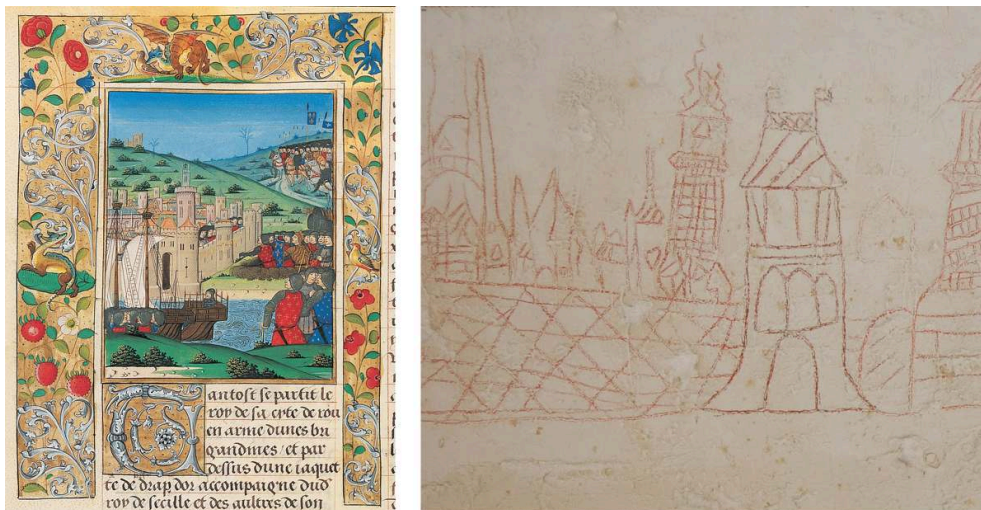 Tantost se partit le
roy de sa cyte de rou
en arme dunes bri
gandines / et par
dessus dune iaquet
te de drap dor accompaigne dud
roy de secille et des aultres de son